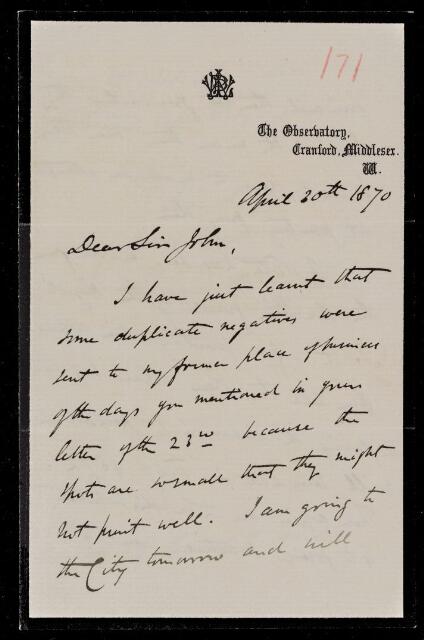 171
The Observatory,
Cranford, Middlesex.
W.
April 30th 1870
Dear Sir John,
I have just learnt that
some duplicate negatives were
sent to my former place of business
of the days you mentioned in yours
letter of the 23rd because the
spots are so small that they might
not print well. I am going to
the City tomorrow and will